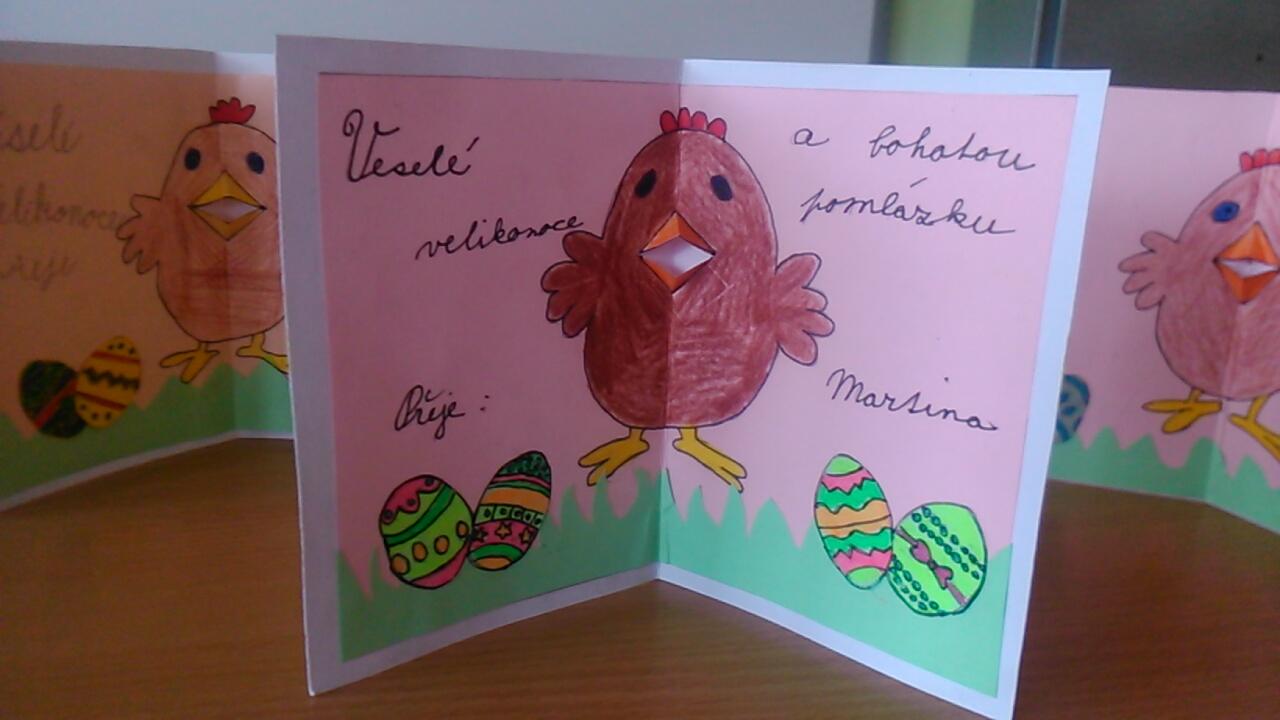 Veselé
velikonoce
a bohatou
pomlázku
Přeje:
Martina
eselé
elikonoce
řeje